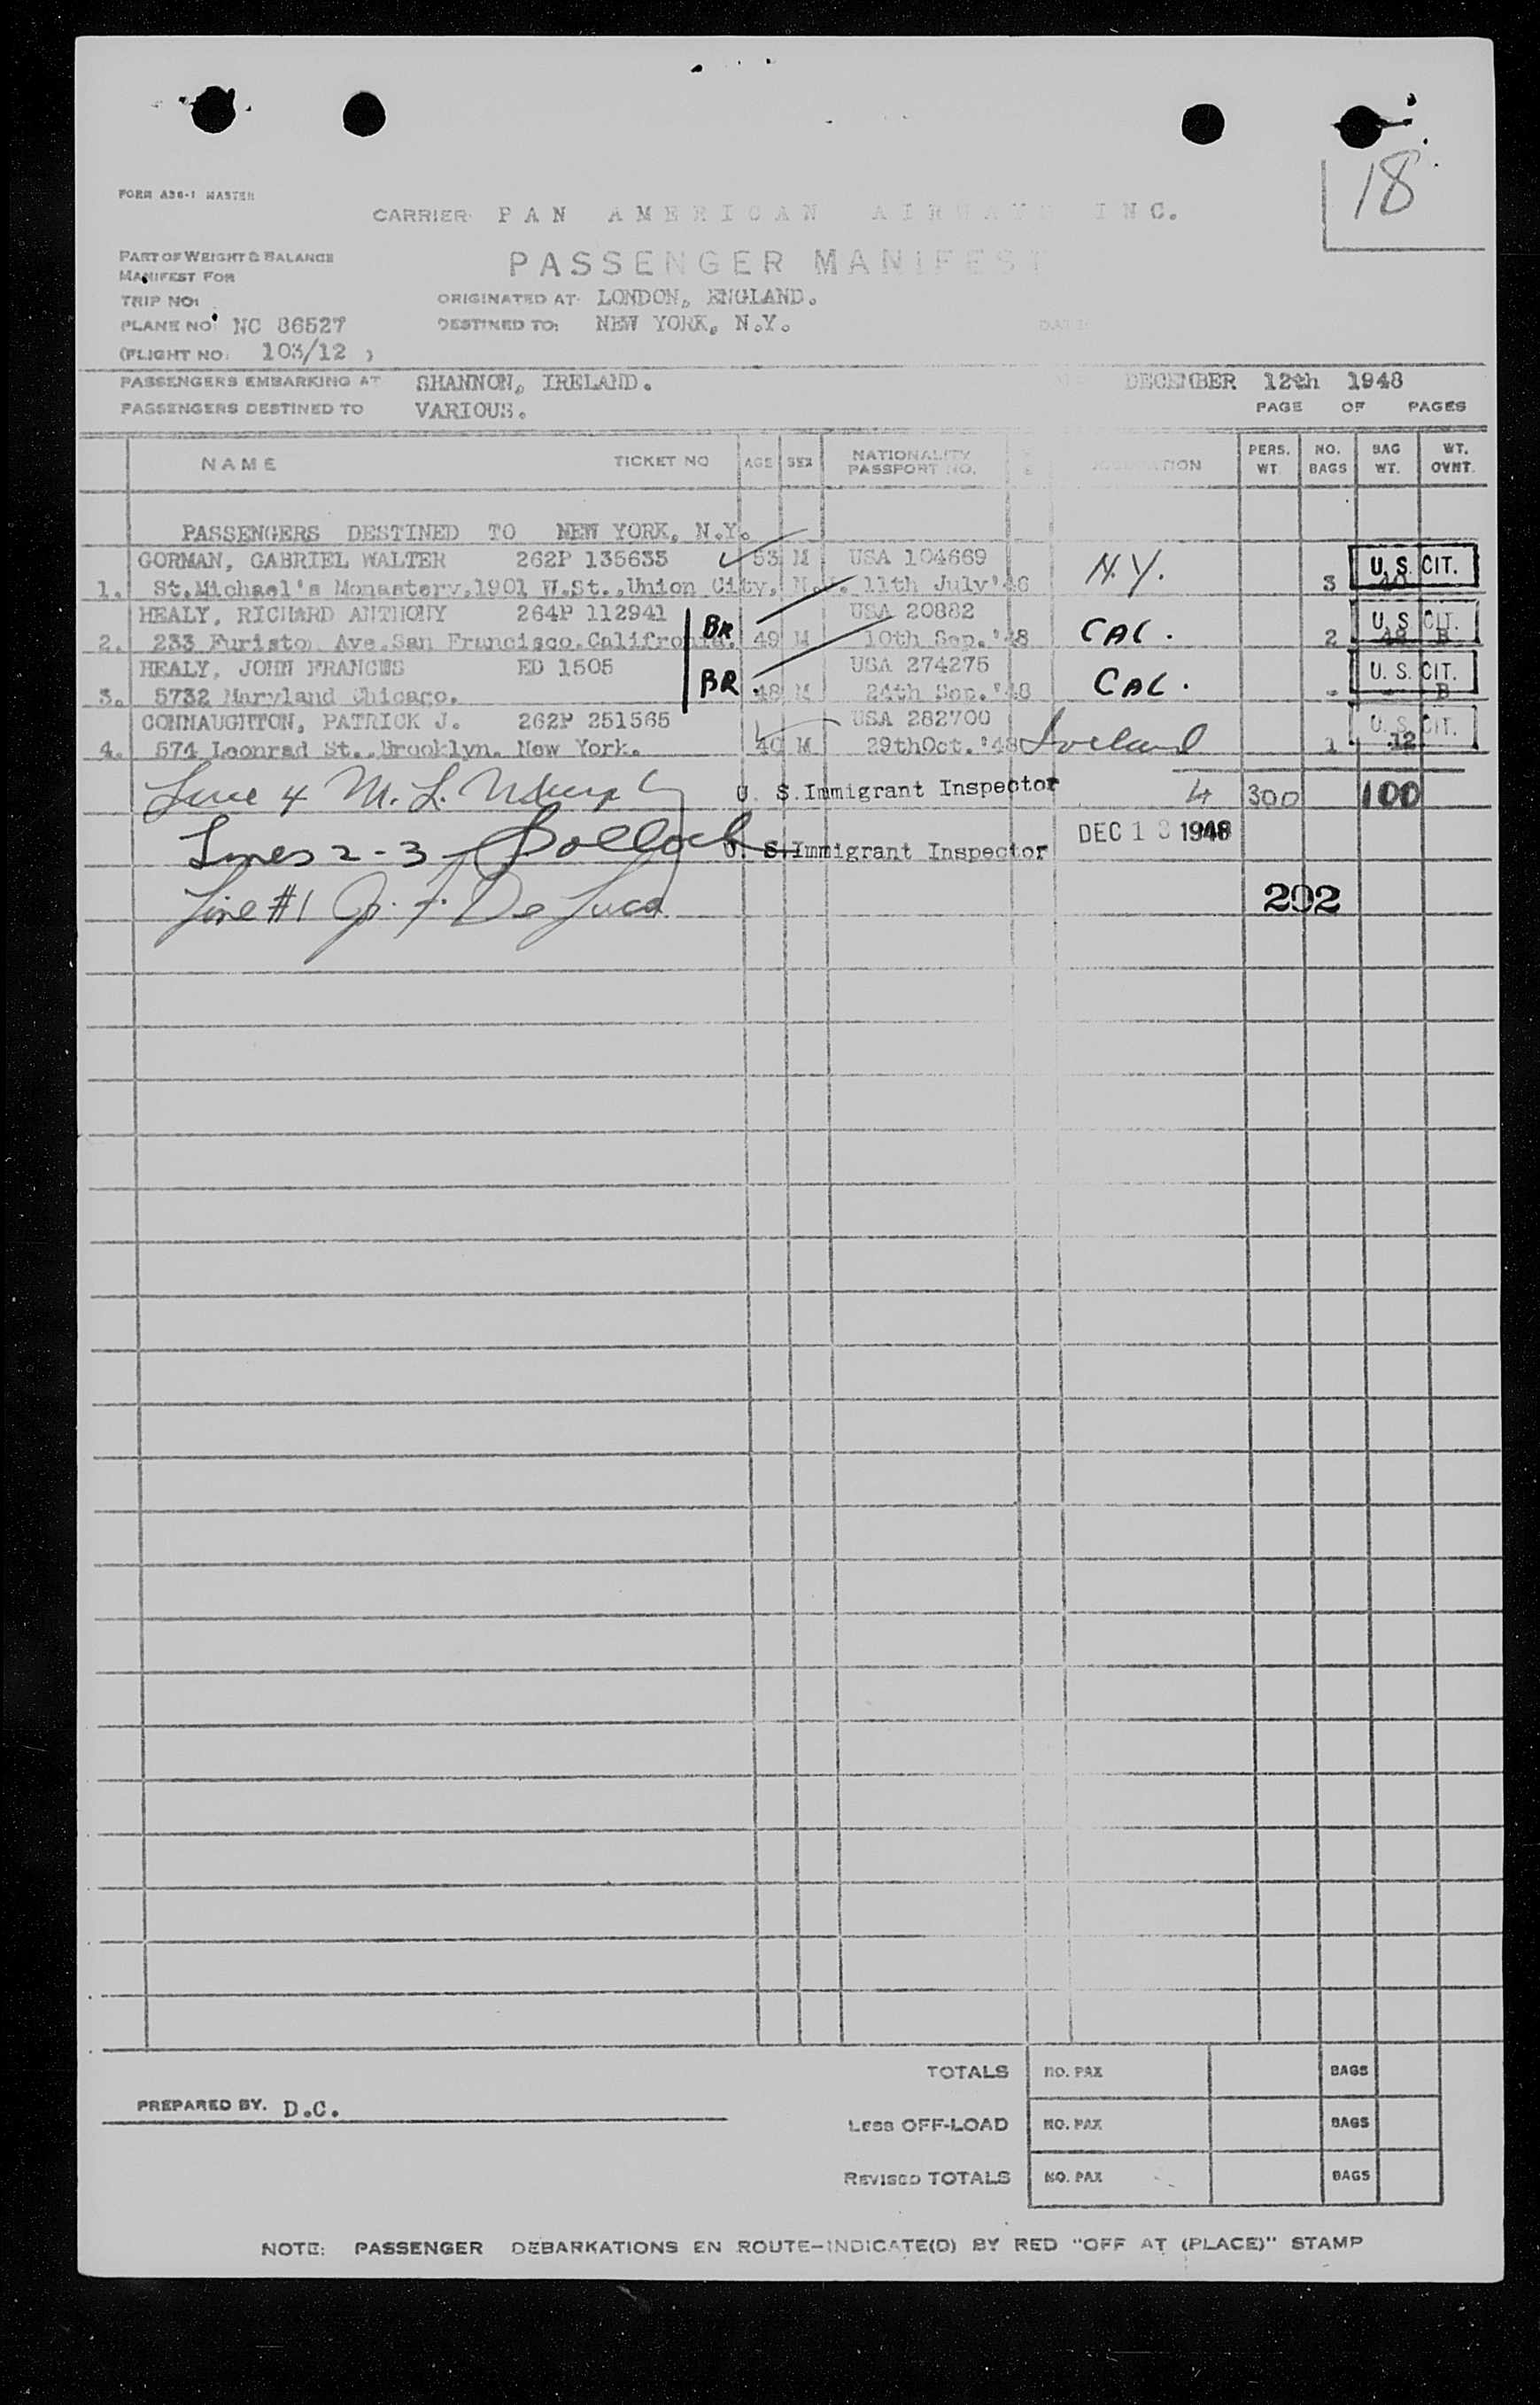 18
FORM A36-1 MASTER
CARRIER: PAN AMERICAN AIRWAYS INC.
PART OF WEIGHT & BALANCE
MANIFEST FOR
PASSENGER MANIFEST
TRIP NO:
ORIGINATED AT: LONDON, ENGLAND.
PLANE NO: NC 86527
DESTINED TO: NEW YORK, N.Y.
DATE
(FLIGHT NO. 103/12 )
PASSENGERS EMBARKING AT SHANNON, IRELAND. DECEMBER 12th 1948
PASSENGERS DESTINED TO VARIOUS. PAGE OF PAGES
NAME TICKET NO AGE SEX NATIONALITY PASSPORT NO. PERS. WT. NO. BAGS BAG WT. WT. OVHT.
PASSENGERS DESTINED TO NEW YORK, N.Y.
GORMAN, GABRIEL WALTER 262P 135635 53 M USA 104669 N.Y. U. S. CIT.
1. St.Michael's Monastery,1901 W.St.,Union City, N.J. 11th July'46 3 40
HEALY, RICHARD ANTHONY 264P 112941 BR USA 20882 U. S. CIT.
2. 233 Ave.San Francisco. 49 M 10th Sep.'48 CAL. 2 48 B
HEALY, JOHN FRANCIS ED 1505 BR USA 274275 CAL. U. S. CIT.
3. 5732 Maryland Chicago. 48 M 24th Sep.'48 - - B
CONNAUGHTON, PATRICK J. 262P 251565 USA 282700 U. S. CIT.
4. 574 Leonrad St., Brooklyn. New York. 40 M 29thOct.'48 Ireland 1 12
Line 4 M. L. Murphy U. S. Immigrant Inspector 4 300 100
Lines 2-3 Pollock U. S. Immigrant Inspector DEC 13 1948
Line #1 De Luca 202
TOTALS NO. PAX BAGS
PREPARED BY. D.C.
Less OFF-LOAD NO. PAX BAGS
REVISED TOTALS NO. PAX BAGS
NOTE: PASSENGER DEBARKATIONS EN ROUTE-INDICATE(D) BY RED "OFF AT (PLACE)" STAMP